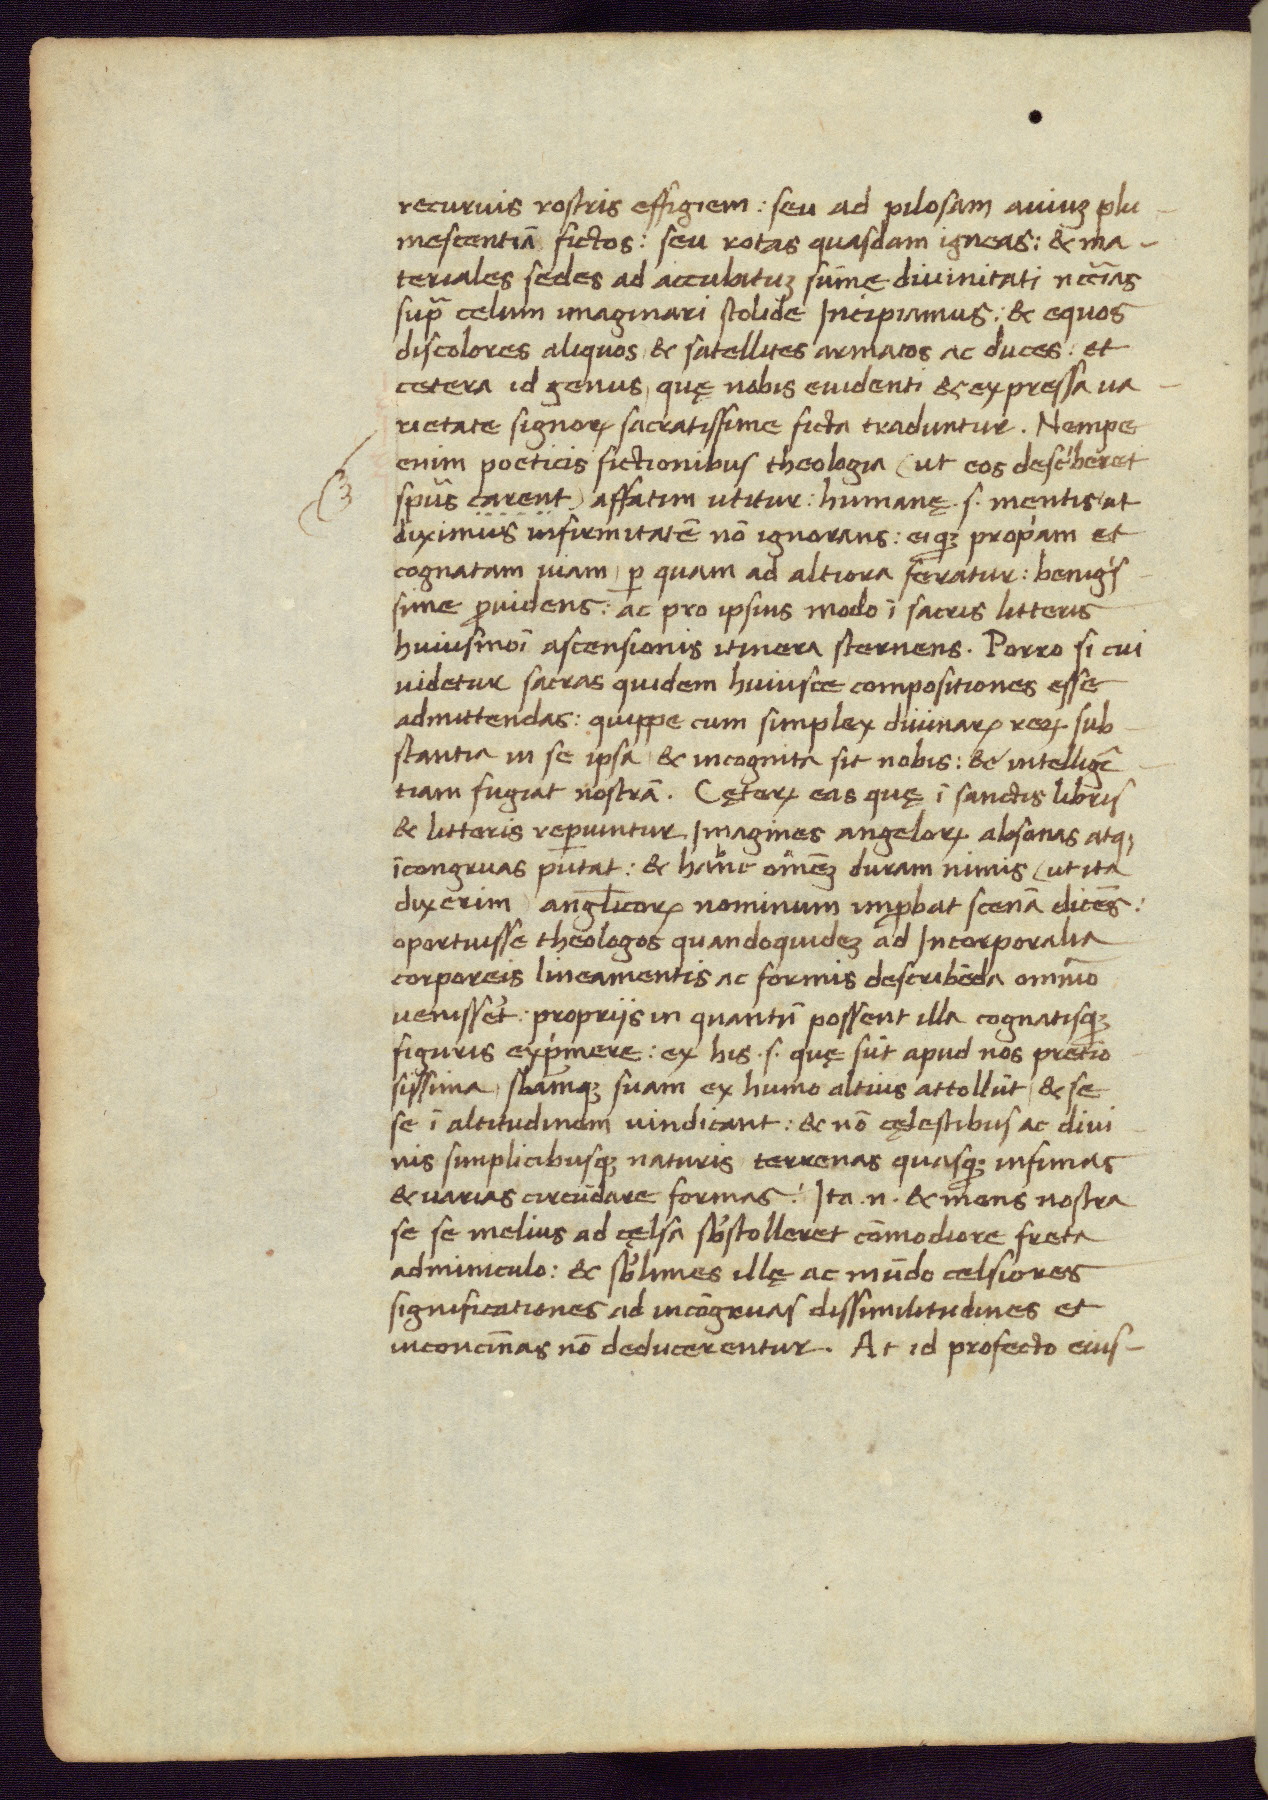 recuruis rostris effigiem: seu ad pilosam auiuꝫ plu-
mescentiā fictos: seu rotas quasdam igneas: & ma-
teriales sedes ad accubituꝫ sūme diuinitati nccīas
supͣ celum imaginari stolide Incipiamus: & equos
discolores aliquos & satellites armatos ac duces: et
cetera id genus, quę nobis euidenti & expressa ua-
rietate signoꝝ sacratissime ficta traduntur. Nempe
enim poeticis fictionibus theologia (ut eos descͥberet
spūs carent) affatim utitur: humanę .s. mentis (ut
diximus infirmitatē nō ignorans: eiqꝫ propͥam et
cognatam uiam, ꝑ quam ad altiora feratur: benigͥs-
sime ꝓuidens: ac pro ipsius modo ī sacris litteris
huiusmōi ascensionis itinera sternens. Porro si cui
uidetur sacras quidem huiusce compositiones esse
admittendas: quippe cum simplex diuinaꝝ reꝝ sub-
stantia in se ipsa & incognita sit nobis: & intelligē-
tiam fugiat nostrā. Cęteꝝ eas quę ī sanctis libris
& litteris reꝑiuntur Imagines angeloꝝ absonas atqꝫ
īcongruas putat: & hanc omnēꝫ duram nimis (ut ita
dixerim) anglicoꝝ nominum imꝓbat scenā dicēs:
oportuisse theologos quandoquideꝫ ad Incorporalia
corporeis lineamentis ac formis describēda omnīo
uenisset: propriis in quantū possent illa cognatisqꝫ
figuris expͥmere: ex his .s. quę sūt apud nos pretio-
sissima, sbāmqꝫ suam ex humo altius attollūt, & se
se ī altitudinem uindicant: & nō cęlestibus ac diui-
nis simplicibusqꝫ naturis terrenas quasqꝫ infimas
& uarias circūdare formas: Ita .n. & mens nostra
se se melius ad cęlsa sbͥstolleret cōmodiore freta
adminiculo: & sbͥlimes illę ac mūdo celsiores
significationes ad incōgruas dissimilitudines et
inconcīnas nō deducerentur. At id profecto eius-